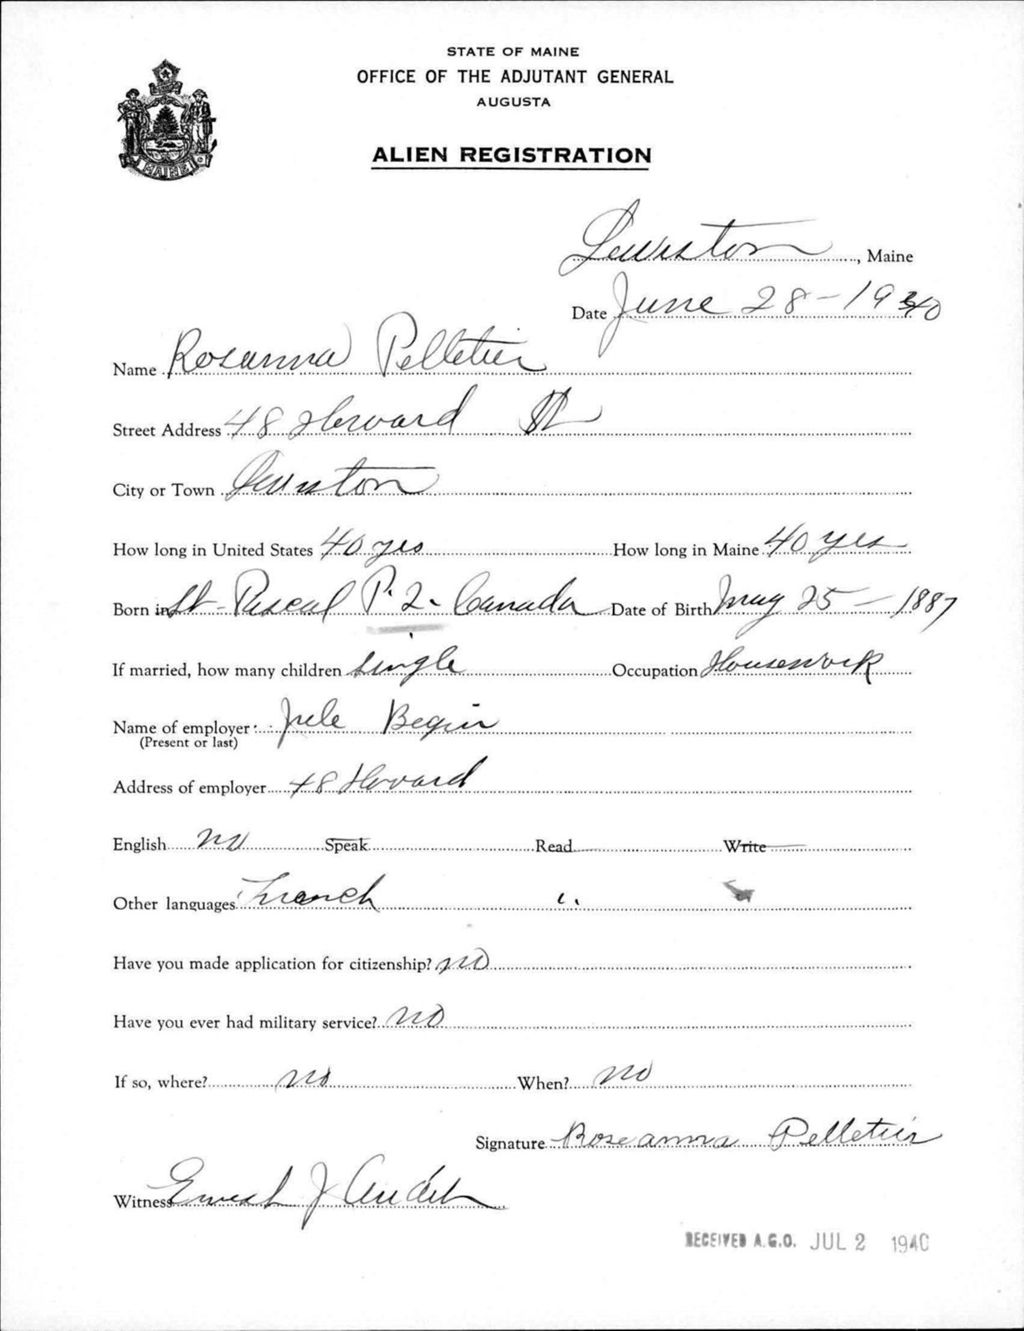 STATE OF MAINE
OFFICE OF THE ADJUTANT GENERAL
AUGUSTA
ALIEN REGISTRATION
MAINE
Lewiston, Maine
Date June 28-1940
Name Rosanna Pelletier
Street Address 48 Howard St
City or Town Lewiston
How long in United States 40 yrs How long in Maine 40 yrs
Born in St-Pascal P.2. Canada Date of Birth May 25-1887
If married, how many children single Occupation Housework
Name of employer Jule Begin
(Present or last)
Address of employer 48 Howard
English no Speak Read Write
Other languages French "
Have you made application for citizenship? no
Have you ever had military service? no
If so, where? no When? no
Signature Roseanna Pelletier
Witness Ernest J
RECEIVED A.G.O. JUL 2 1940